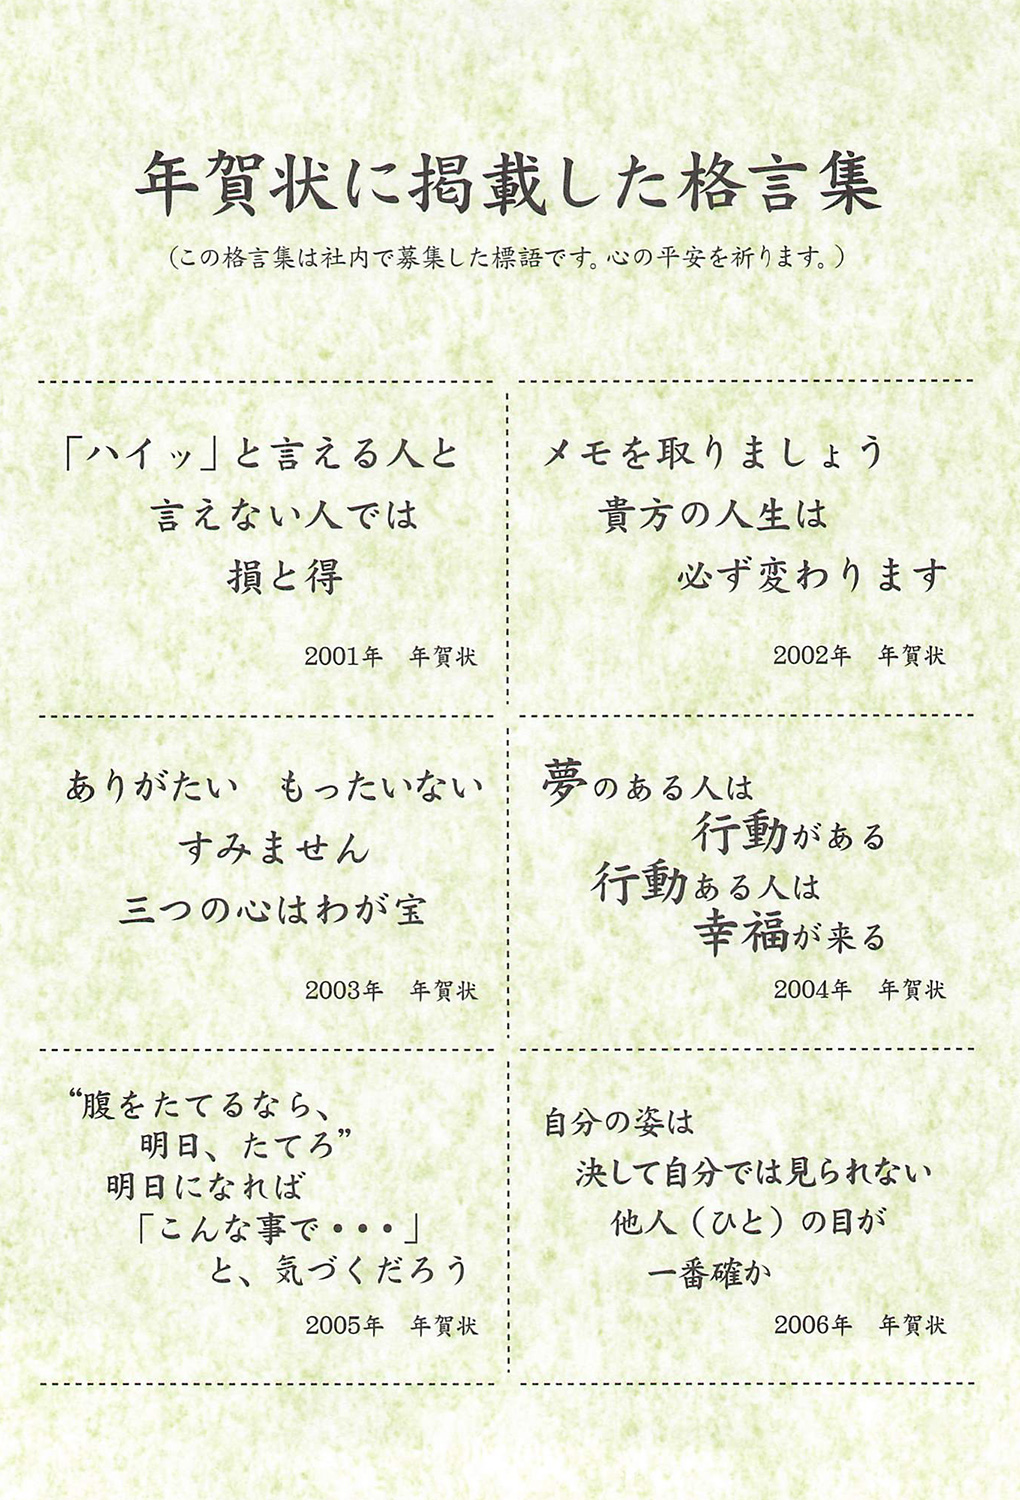 年賀状に掲載した格言集
（この格言集は社内で募集した標語です。心の平安を祈ります。）
「ハイッ」と言える人と
言えない人では
損と得
2001年　年賀状
メモを取りましょう
貴方の人生は
必ず変わります
2002年　年賀状
ありがたい　もったいない
すみません
三つの心はわが宝
2003年　年賀状
夢のある人は
行動がある
行動ある人は
幸福が来る
2004年　年賀状
“腹をたてるなら、
明日、たてろ”
明日になれば
「こんな事で・・・」
と、気づくだろう
2005年　年賀状
自分の姿は
決して自分では見られない
他人（ひと）の目が
一番確か
2006年　年賀状